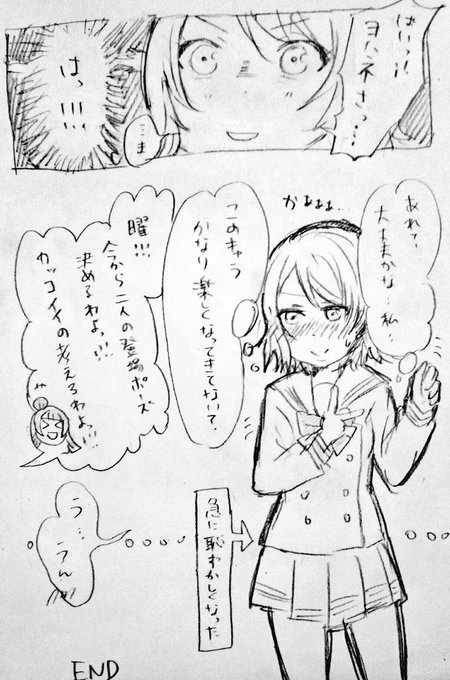 はいっ!!
ヨハネさっ…
…ま
はっ!!!
かぁぁぁ…
あれ?
大丈夫かな…私…
このきゃら
かなり楽しくなってきてないて?
曜!!!
今から二人の登場ポーズ
決めるわよっ!!!
カッコイイの考えるわよっ!!!
急に恥ずかしくなった
う…
うん
END